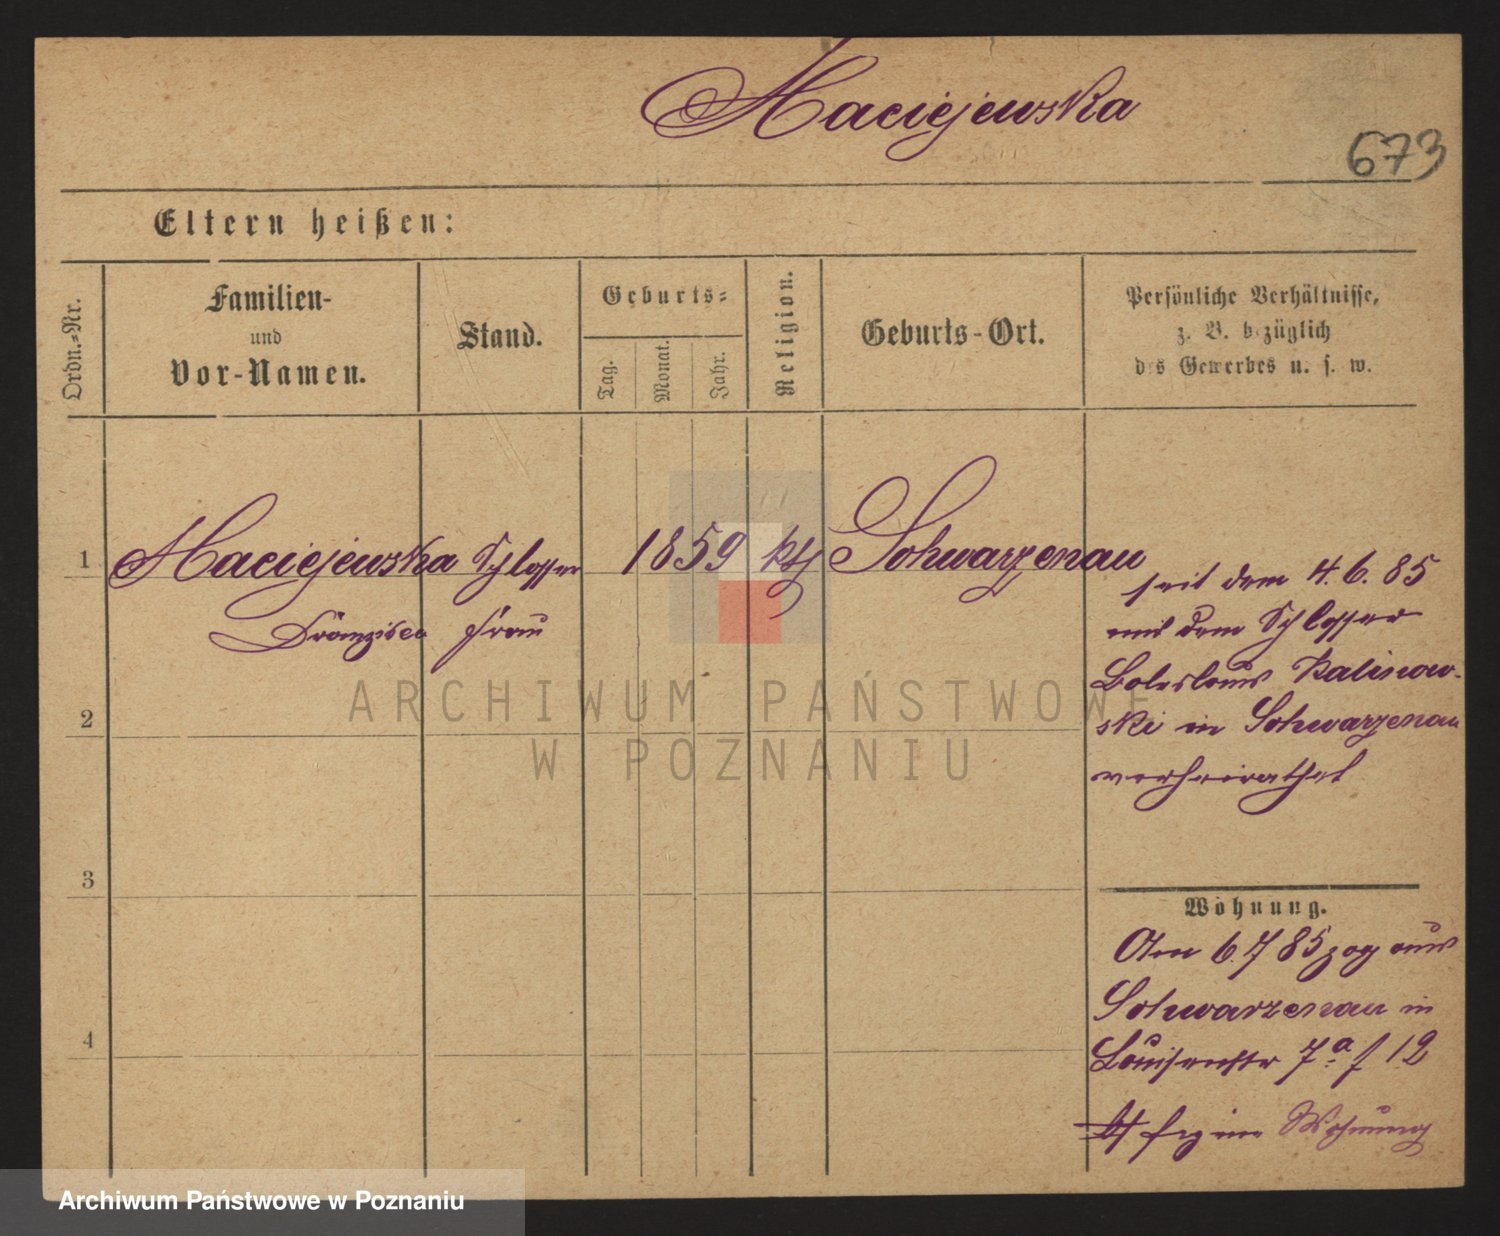 Maciejewska
673
Eltern heißen:
Ordn.-Nr.
Familien-
und
Vor-Namen.
Stand.
Geburts-
Tag.
Monat.
Jahr.
Religion.
Geburts-Ort.
Persönliche Verhältnisse,
z. B. bezüglich
des Gewerbes u. s. w.
1 Maciejewska Schlosser 1859 kth Schwarzenau
Franzisca frau
seit dem 4.6.85
mit dem Schlosser
Boleslaus Kalinow-
ski in Schwarzenau
verheirathet
2
3
4
Wohnung.
Am 6.7 85 zog aus
Schwarzenau in
Louisenstr 7a f 12
in Wohnung
ARCHIWUM PAŃSTWOWE
W POZNANIU
Archiwum Państwowe w Poznaniu